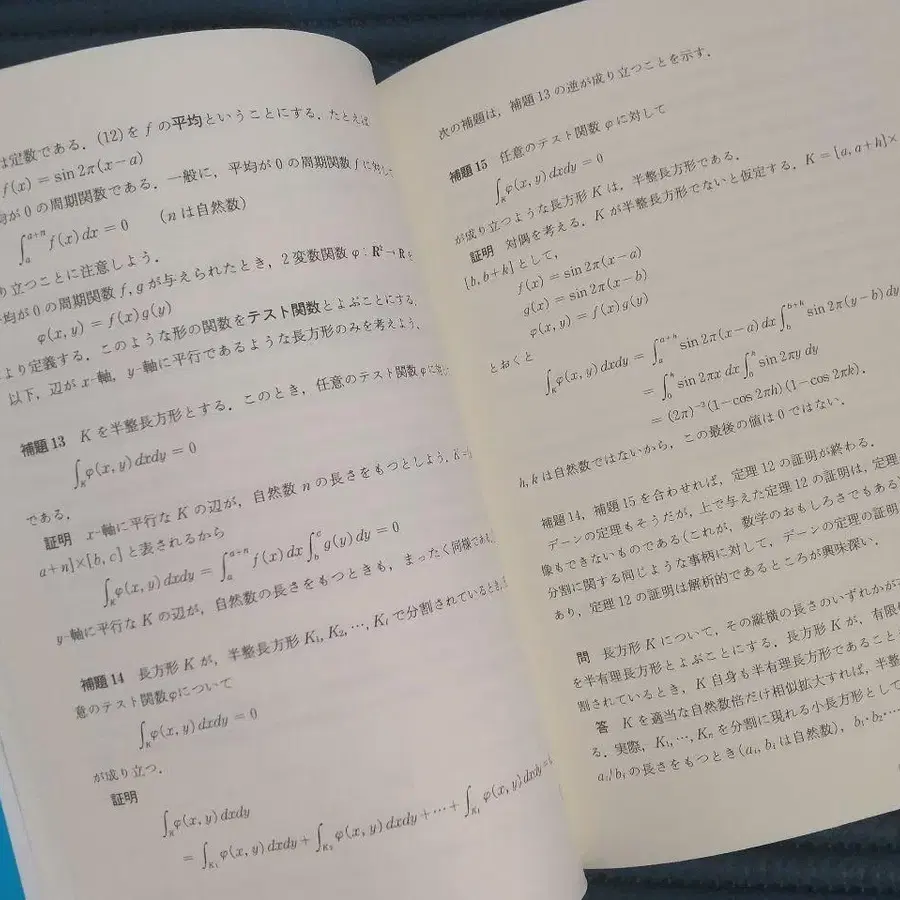 は定数である．(12)を f の平均ということにする．たとえば
f(x) = sin 2π(x−a)
均が 0 の周期関数である．一般に，平均が 0 の周期関数 f に対して
∫_a^{a+n} f(x) dx = 0 (n は自然数)
り立つことに注意しよう．
平均が 0 の周期関数 f, g が与えられたとき，2 変数関数 φ : R² → R を
φ(x, y) = f(x)g(y)
より定義する．このような形の関数をテスト関数とよぶことにする．
以下，辺が x-軸，y-軸に平行であるような長方形のみを考えよう．
補題 13 K を半整長方形とする．このとき，任意のテスト関数 φ に対し
∫_K φ(x, y) dxdy = 0
である．
証明 x-軸に平行な K の辺が，自然数 n の長さをもつとしよう．K=
a+n]×[b, c] と表されるから
∫_K φ(x, y) dxdy = ∫_a^{a+n} f(x) dx ∫_b^c g(y) dy = 0
y-軸に平行な K の辺が，自然数の長さをもつときも，まったく同様である．
補題 14 長方形 K が，半整長方形 K₁, K₂, …, K_l で分割されているとき，
意のテスト関数 φ について
∫_K φ(x, y) dxdy = 0
が成り立つ．
証明
∫_K φ(x, y) dxdy
= ∫_{K₁} φ(x, y) dxdy + ∫_{K₂} φ(x, y) dxdy + ⋯ + ∫_{K_l} φ(x, y) dxdy =
次の補題は，補題 13 の逆が成り立つことを示す．
補題 15 任意のテスト関数 φ に対して
∫_K φ(x, y) dxdy = 0
が成り立つような長方形 K は，半整長方形である．
証明 対偶を考える．K が半整長方形でないと仮定する．K = [a, a+h]×
[b, b+k] として，
f(x) = sin 2π(x−a)
g(x) = sin 2π(x−b)
φ(x, y) = f(x)g(y)
とおくと
∫_K φ(x, y) dxdy = ∫_a^{a+h} sin 2π(x−a) dx ∫_b^{b+k} sin 2π(y−b) dy
= ∫_0^h sin 2πx dx ∫_0^k sin 2πy dy
= (2π)⁻²(1−cos 2πh)(1−cos 2πk).
h, k は自然数ではないから，この最後の値は 0 ではない．
補題 14，補題 15 を合わせれば，定理 12 の証明が終わる．
デーンの定理もそうだが，上で与えた定理 12 の証明は，定理
像もできないものである(これが，数学のおもしろさでもある
分割に関する同じような事柄に対して，デーンの定理の証明
あり，定理 12 の証明は解析的であるところが興味深い．
問 長方形 K について，その縦横の長さのいずれかが
を半有理長方形とよぶことにする．長方形 K が，有限
割されているとき，K 自身も半有理長方形であること
答 K を適当な自然数倍だけ相似拡大すれば，半整
る．実際，K₁, ⋯, Kₙ を分割に現れる小長方形として
aᵢ/bᵢ の長さをもつとき(aᵢ, bᵢ は自然数)，b₁·b₂⋯